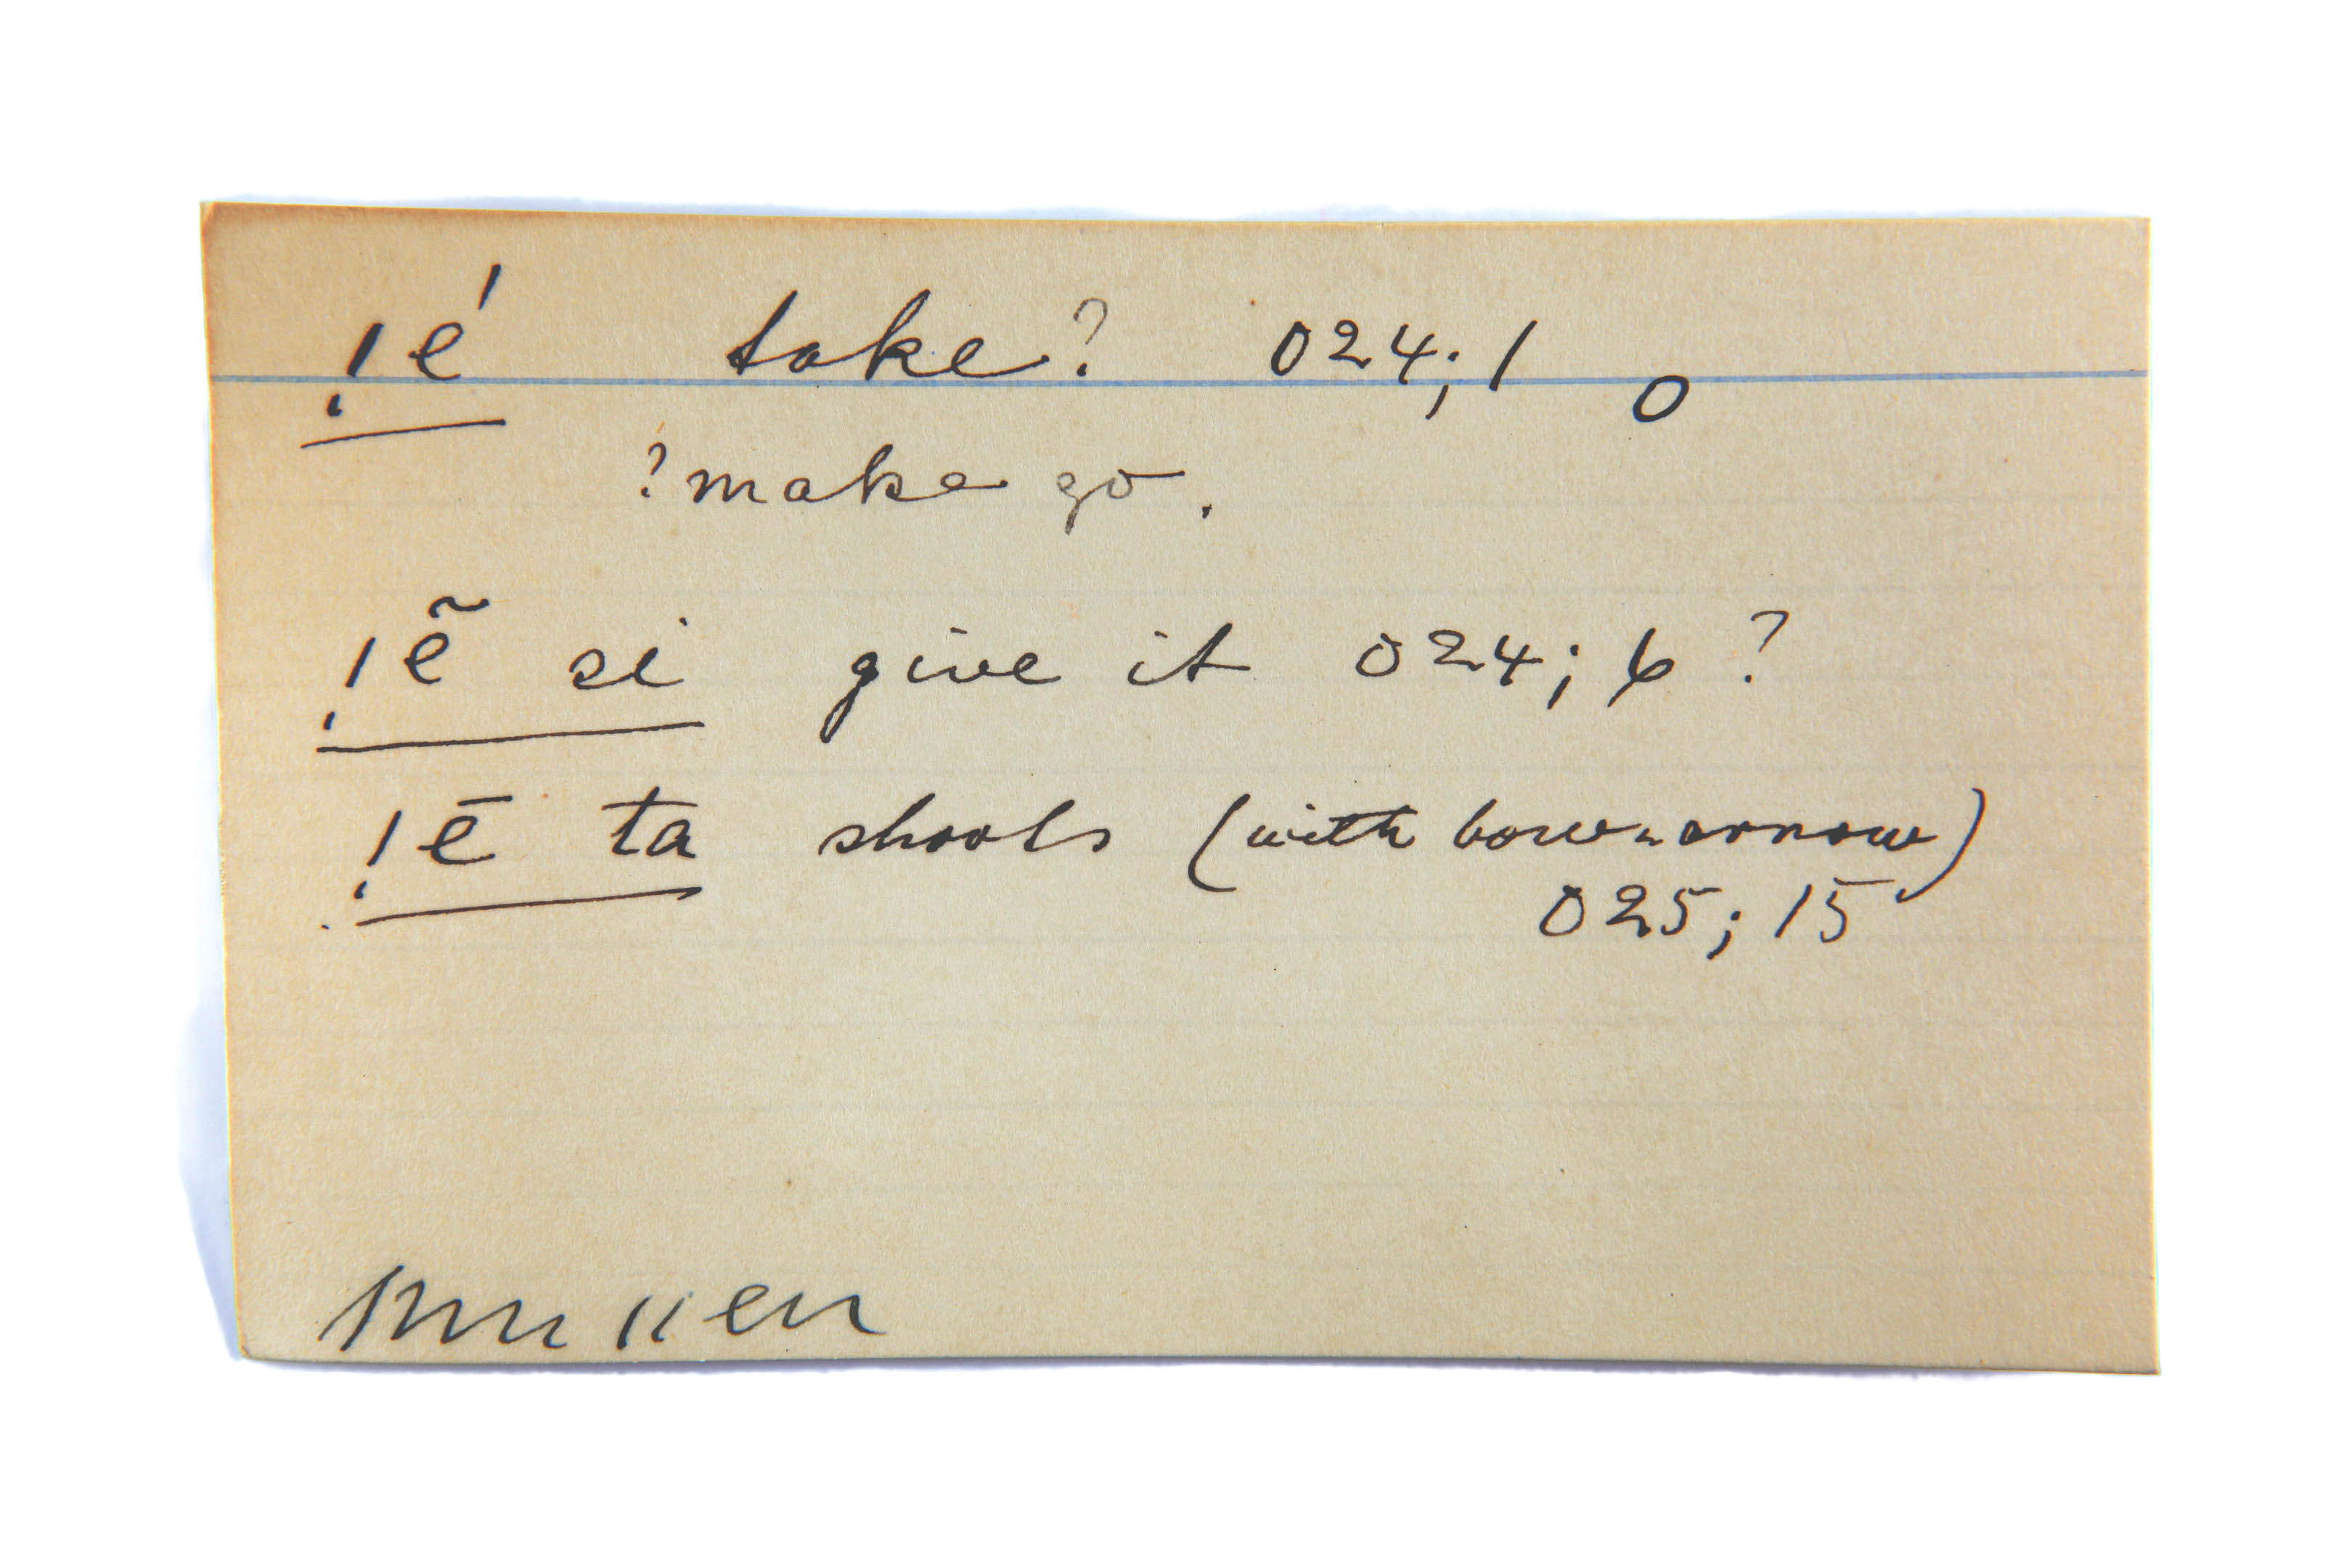 !é take? 024;1 o
?make go.
!ẽ si give it 024; 6 ?
!ē ta shoots (with bow & arrow)
025; 15